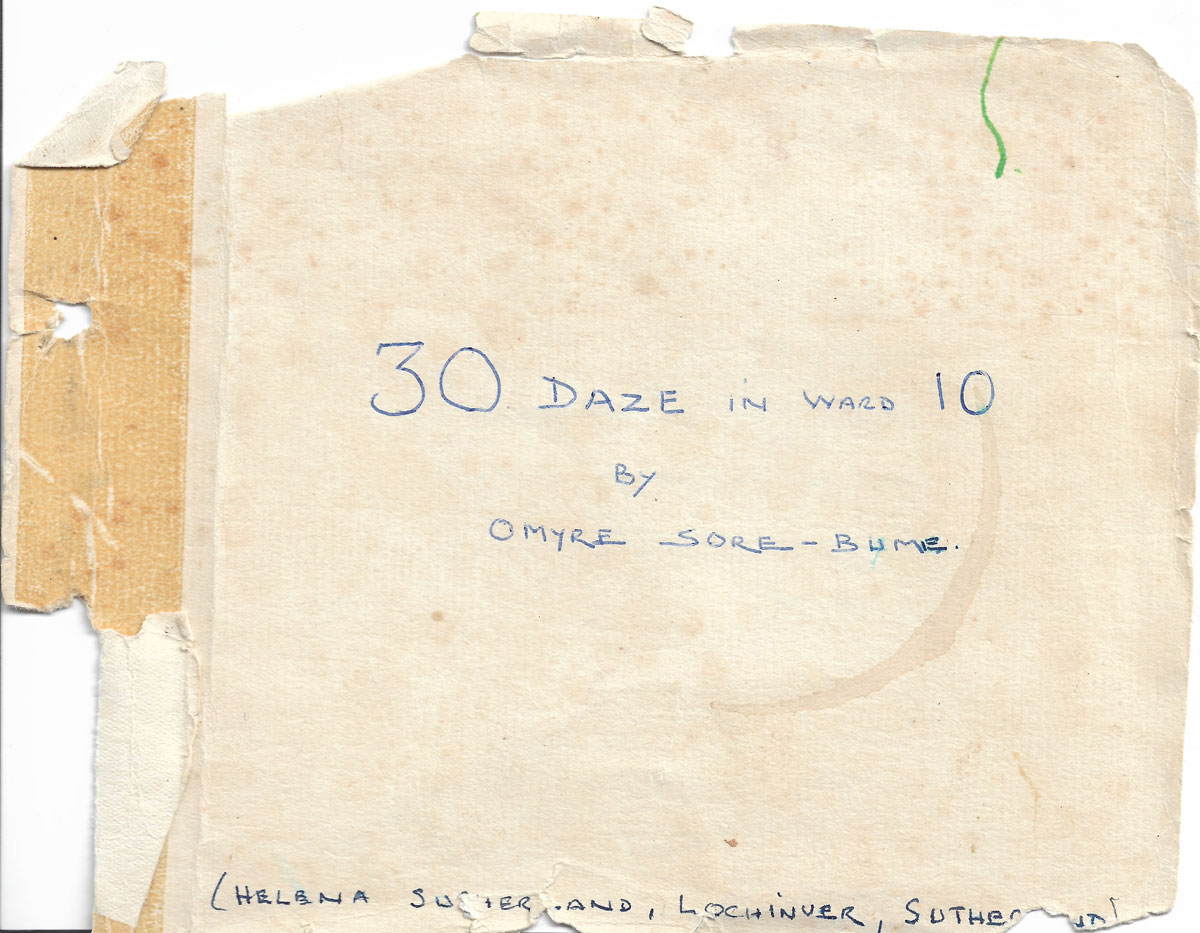 30 DAZE IN WARD 10
BY
OMYRE SORE-BUME.
(HELENA SUTHERLAND, LOCHINVER, SUTHERLAND)